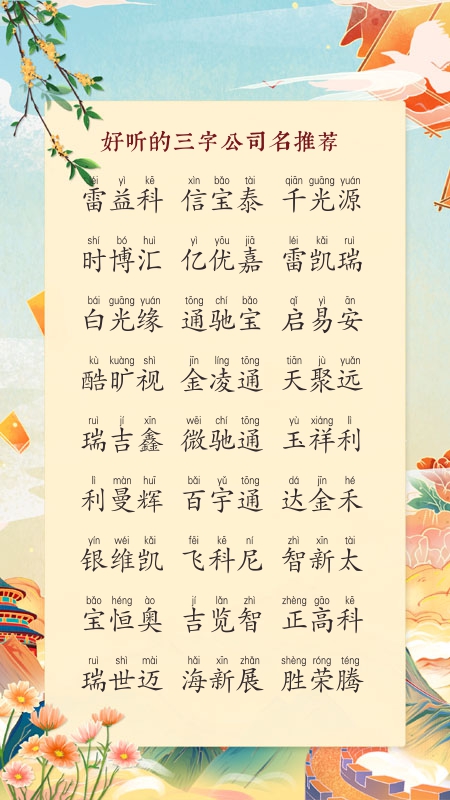 好听的三字公司名推荐
léi yì kē xìn bǎo tài qiān guāng yuán
雷益科 信宝泰 千光源
shí bó huì yì yōu jiā léi kǎi ruì
时博汇 亿优嘉 雷凯瑞
bái guāng yuán tōng chí bǎo qǐ yì ān
白光缘 通驰宝 启易安
kù kuàng shì jīn líng tōng tiān jù yuǎn
酷旷视 金凌通 天聚远
ruì jí xīn wēi chí tōng yù xiáng lì
瑞吉鑫 微驰通 玉祥利
lì màn huī bǎi yǔ tōng dá jīn hé
利曼辉 百宇通 达金禾
yín wéi kǎi fēi kē ní zhì xīn tài
银维凯 飞科尼 智新太
bǎo héng ào jí lǎn zhì zhèng gāo kē
宝恒奥 吉览智 正高科
ruì shì mài hǎi xīn zhǎn shèng róng téng
瑞世迈 海新展 胜荣腾